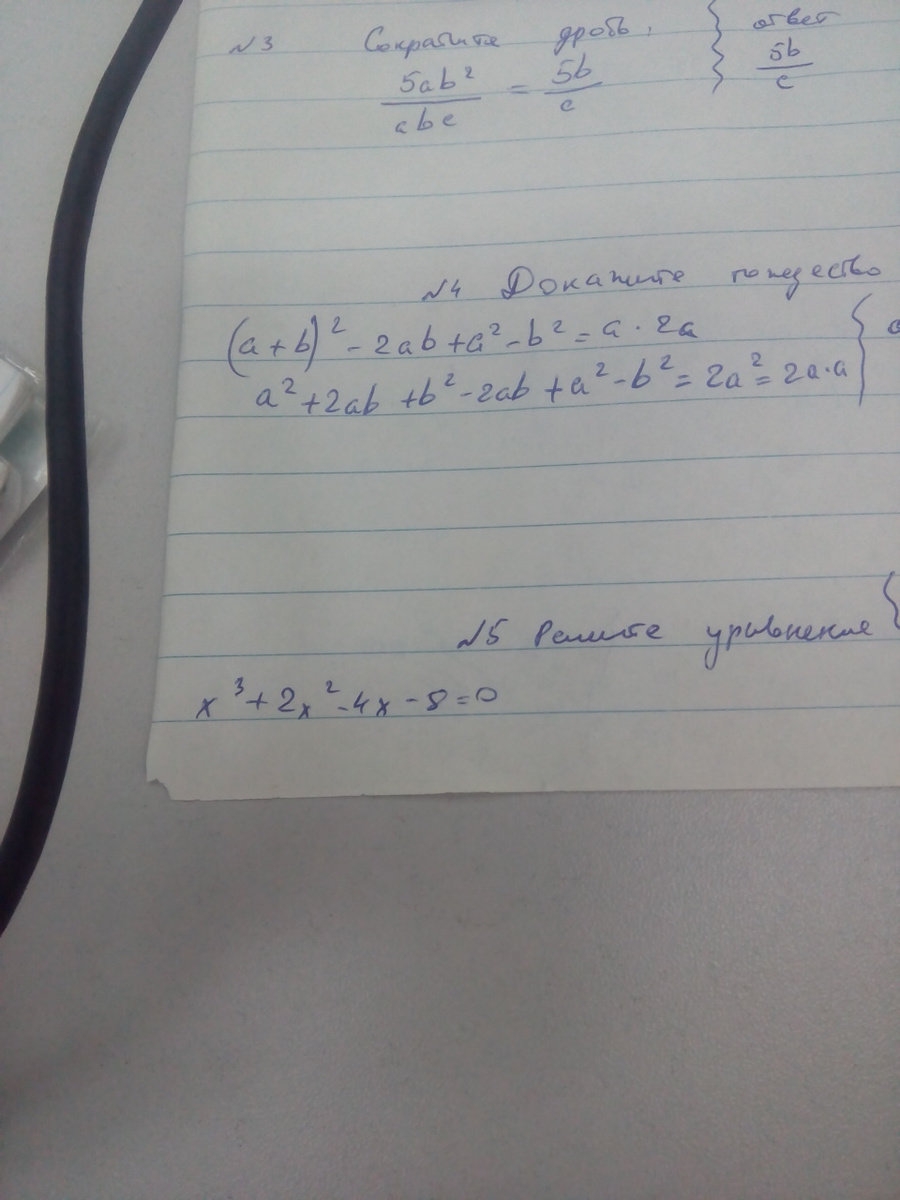 №3 Сократите дробь. ответ
5ab² / abc = 5b / c 5b / c
№4 Докажите тождество
(a+b)² - 2ab + a² - b² = a · 2a
a² + 2ab + b² - 2ab + a² - b² = 2a² = 2a·a
№5 Решите уравнение
x³ + 2x² - 4x - 8 = 0